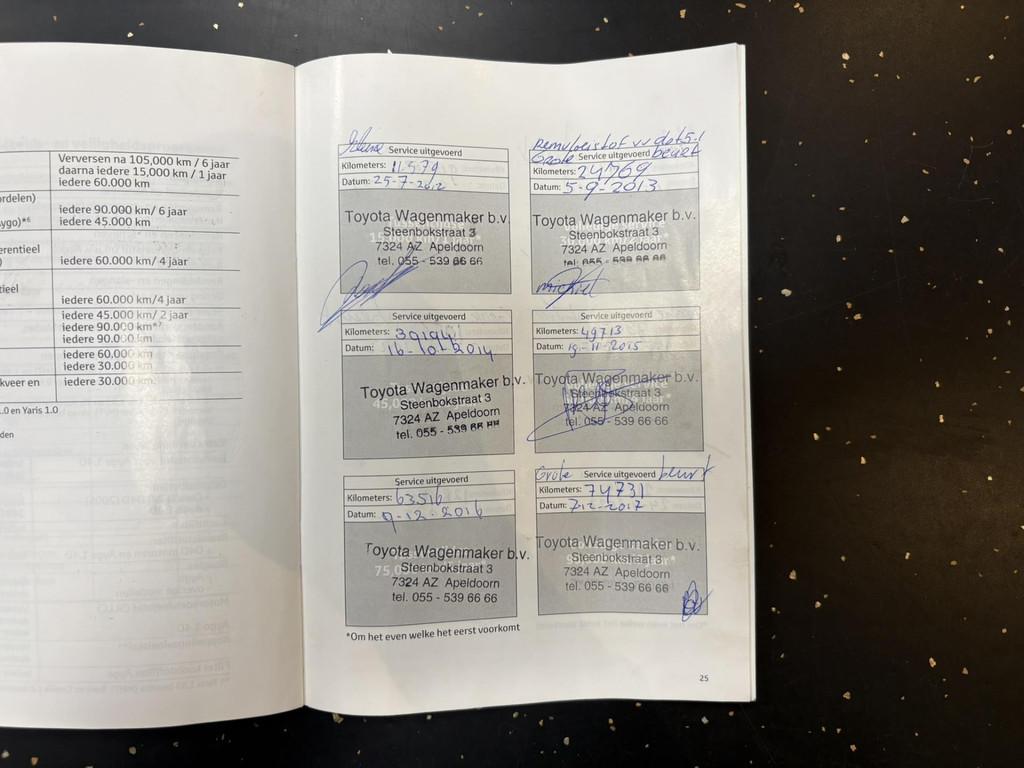 Verversen na 105,000 km / 6 jaar
daarna iedere 15,000 km / 1 jaar
iedere 60.000 km
rdelen)
iedere 90.000 km/ 6 jaar
iedere 45.000 km
ygo)*6
erentieel
iedere 60.000 km/ 4 jaar
tieel
iedere 60.000 km/4 jaar
iedere 45.000 km/ 2 jaar
iedere 90.000 km*7
iedere 90.000 km
iedere 60.000 km
iedere 30.000 km
kveer en
iedere 30.000 km
.0 en Yaris 1.0
den
Kleine
Service uitgevoerd
Kilometers: 11579
Datum: 25-7-2012
Toyota Wagenmaker b.v.
Steenbokstraat 3
7324 AZ Apeldoorn
tel. 055 - 539 66 66
Remvloeistof vv dot 5.1
Grote Service uitgevoerd beurt
Kilometers: 24769
Datum: 5-9-2013
Toyota Wagenmaker b.v.
Steenbokstraat 3
7324 AZ Apeldoorn
tel. 055 - 539 66 66
Michiel
Service uitgevoerd
Kilometers: 39194
Datum: 16-10-2014
Toyota Wagenmaker b.v.
45,0
Steenbokstraat 3
7324 AZ Apeldoorn
tel. 055 - 539 66 66
Service uitgevoerd
Kilometers: 49713
Datum: 19-11-2015
Toyota Wagenmaker b.v.
Steenbokstraat 3
7324 AZ Apeldoorn
tel. 055 - 539 66 66
Service uitgevoerd
Kilometers: 63516
Datum: 9-12-2016
Toyota Wagenmaker b.v.
Steenbokstraat 3
75,0
7324 AZ Apeldoorn
tel. 055 - 539 66 66
Grote Service uitgevoerd beurt
Kilometers: 74731
Datum: 7-12-2017
Toyota Wagenmaker b.v.
Steenbokstraat 3
7324 AZ Apeldoorn
tel. 055 - 539 66 66
*Om het even welke het eerst voorkomt
25